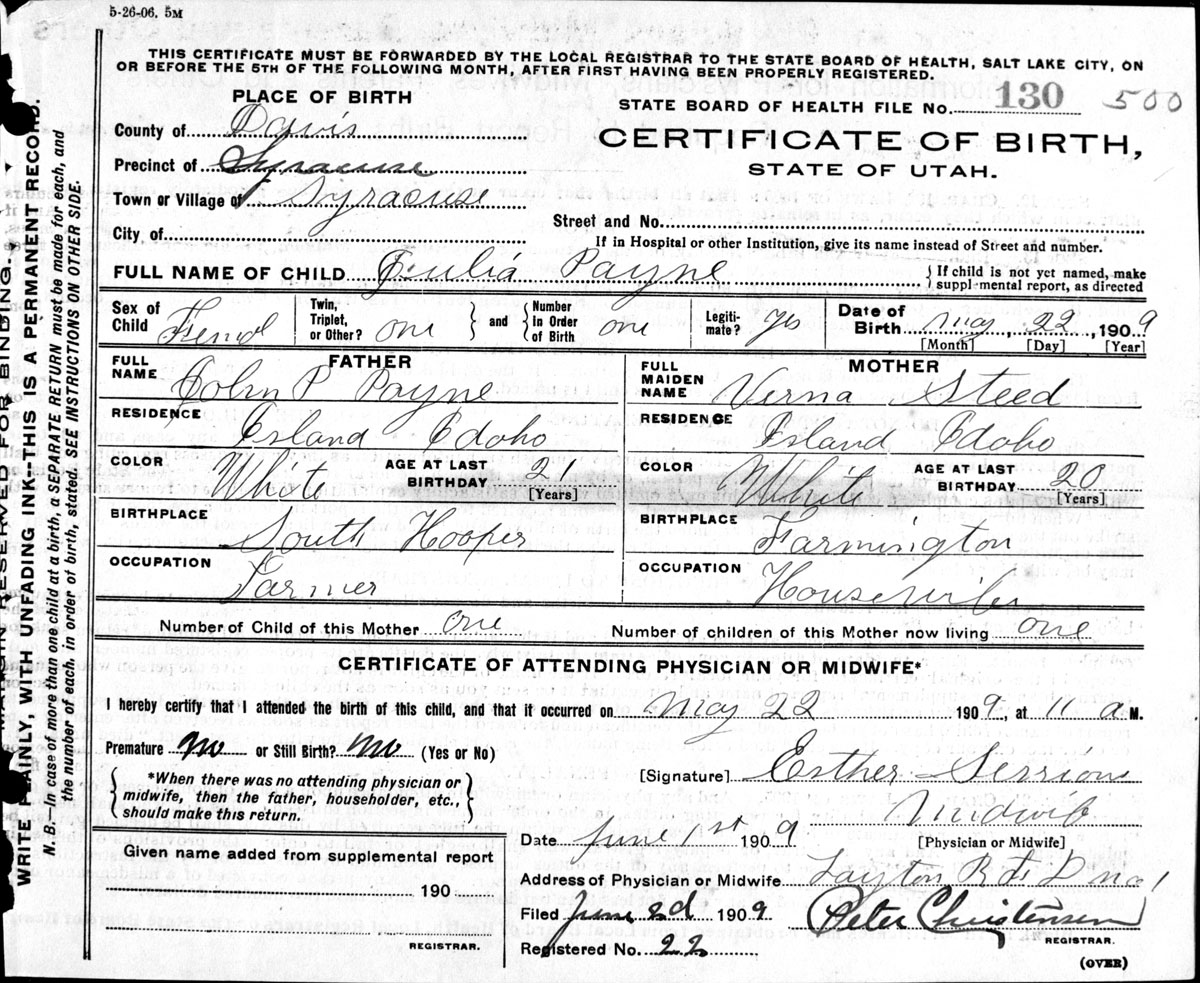 5-26-06. 5M
THIS CERTIFICATE MUST BE FORWARDED BY THE LOCAL REGISTRAR TO THE STATE BOARD OF HEALTH, SALT LAKE CITY, ON
OR BEFORE THE 5TH OF THE FOLLOWING MONTH, AFTER FIRST HAVING BEEN PROPERLY REGISTERED.
PLACE OF BIRTH
STATE BOARD OF HEALTH FILE No. 130 500
County of Davis
CERTIFICATE OF BIRTH,
Precinct of Syracuse
STATE OF UTAH.
Town or Village of Syracuse
Street and No.
City of
If in Hospital or other Institution, give its name instead of Street and number.
FULL NAME OF CHILD Payne { If child is not yet named, make
supplemental report, as directed
Sex of Child Femal Twin, Triplet, or Other? one } and { Number In Order of Birth one Legiti- mate? yes Date of Birth May, 22, 1909
[Month] [Day] [Year]
FATHER MOTHER
FULL NAME John P Payne FULL MAIDEN NAME Verna Steed
RESIDENCE Island Idaho RESIDENCE Island Idaho
COLOR White AGE AT LAST BIRTHDAY 21 [Years] COLOR White AGE AT LAST BIRTHDAY 20 [Years]
BIRTHPLACE South Hooper BIRTHPLACE Farmington
OCCUPATION Farmer OCCUPATION Housewife
Number of Child of this Mother one Number of children of this Mother now living one
CERTIFICATE OF ATTENDING PHYSICIAN OR MIDWIFE*
I hereby certify that I attended the birth of this child, and that it occurred on May 22 1909, at 11 a M.
Premature no or Still Birth? no (Yes or No)
[Signature] Esther Sessions
*When there was no attending physician or
midwife, then the father, householder, etc.,
should make this return.
Midwife
[Physician or Midwife]
Date June 1st 1909
Given name added from supplemental report
Address of Physician or Midwife Layton R F D no 1
190
Filed June 2d 1909 Peter Christensen
REGISTRAR.
REGISTRAR.
Registered No. 22
(OVER)
RESERVED FOR BINDING.
WRITE PLAINLY, WITH UNFADING INK—THIS IS A PERMANENT RECORD.
N. B.—In case of more than one child at a birth, a SEPARATE RETURN must be made for each, and
the number of each, in order of birth, stated. SEE INSTRUCTIONS ON OTHER SIDE.